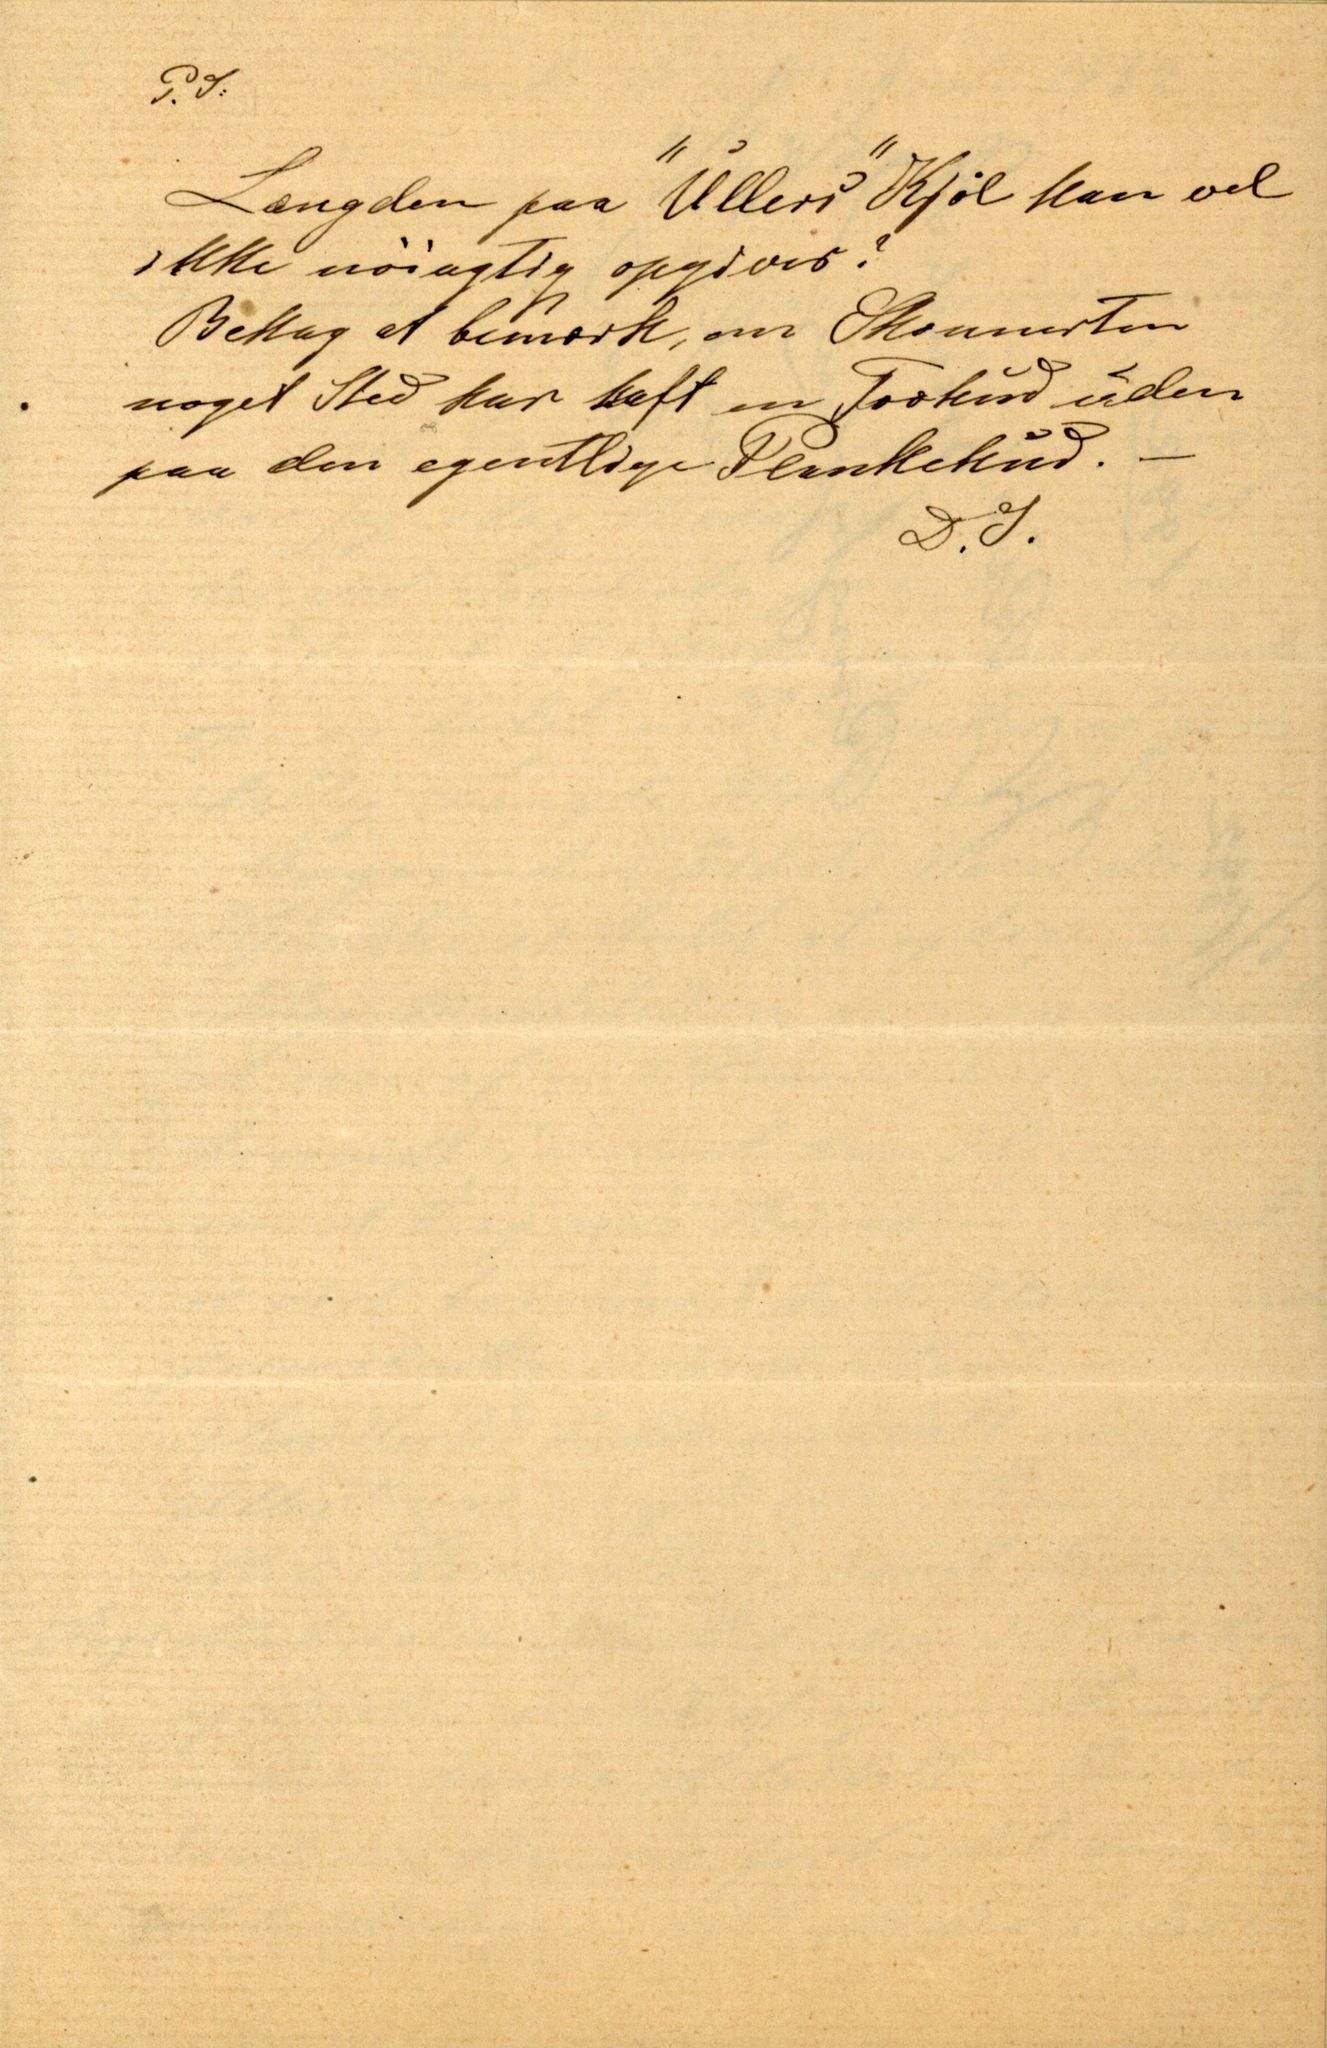 P.S:
Længden paa "Ullers" Kjøl kan vel
ikke nöiagtig opgives?
Behag at bemærk, om Skonnerten
noget Sted har haft en Forhud uden
paa den egentlige Plankehud. —
D.S.